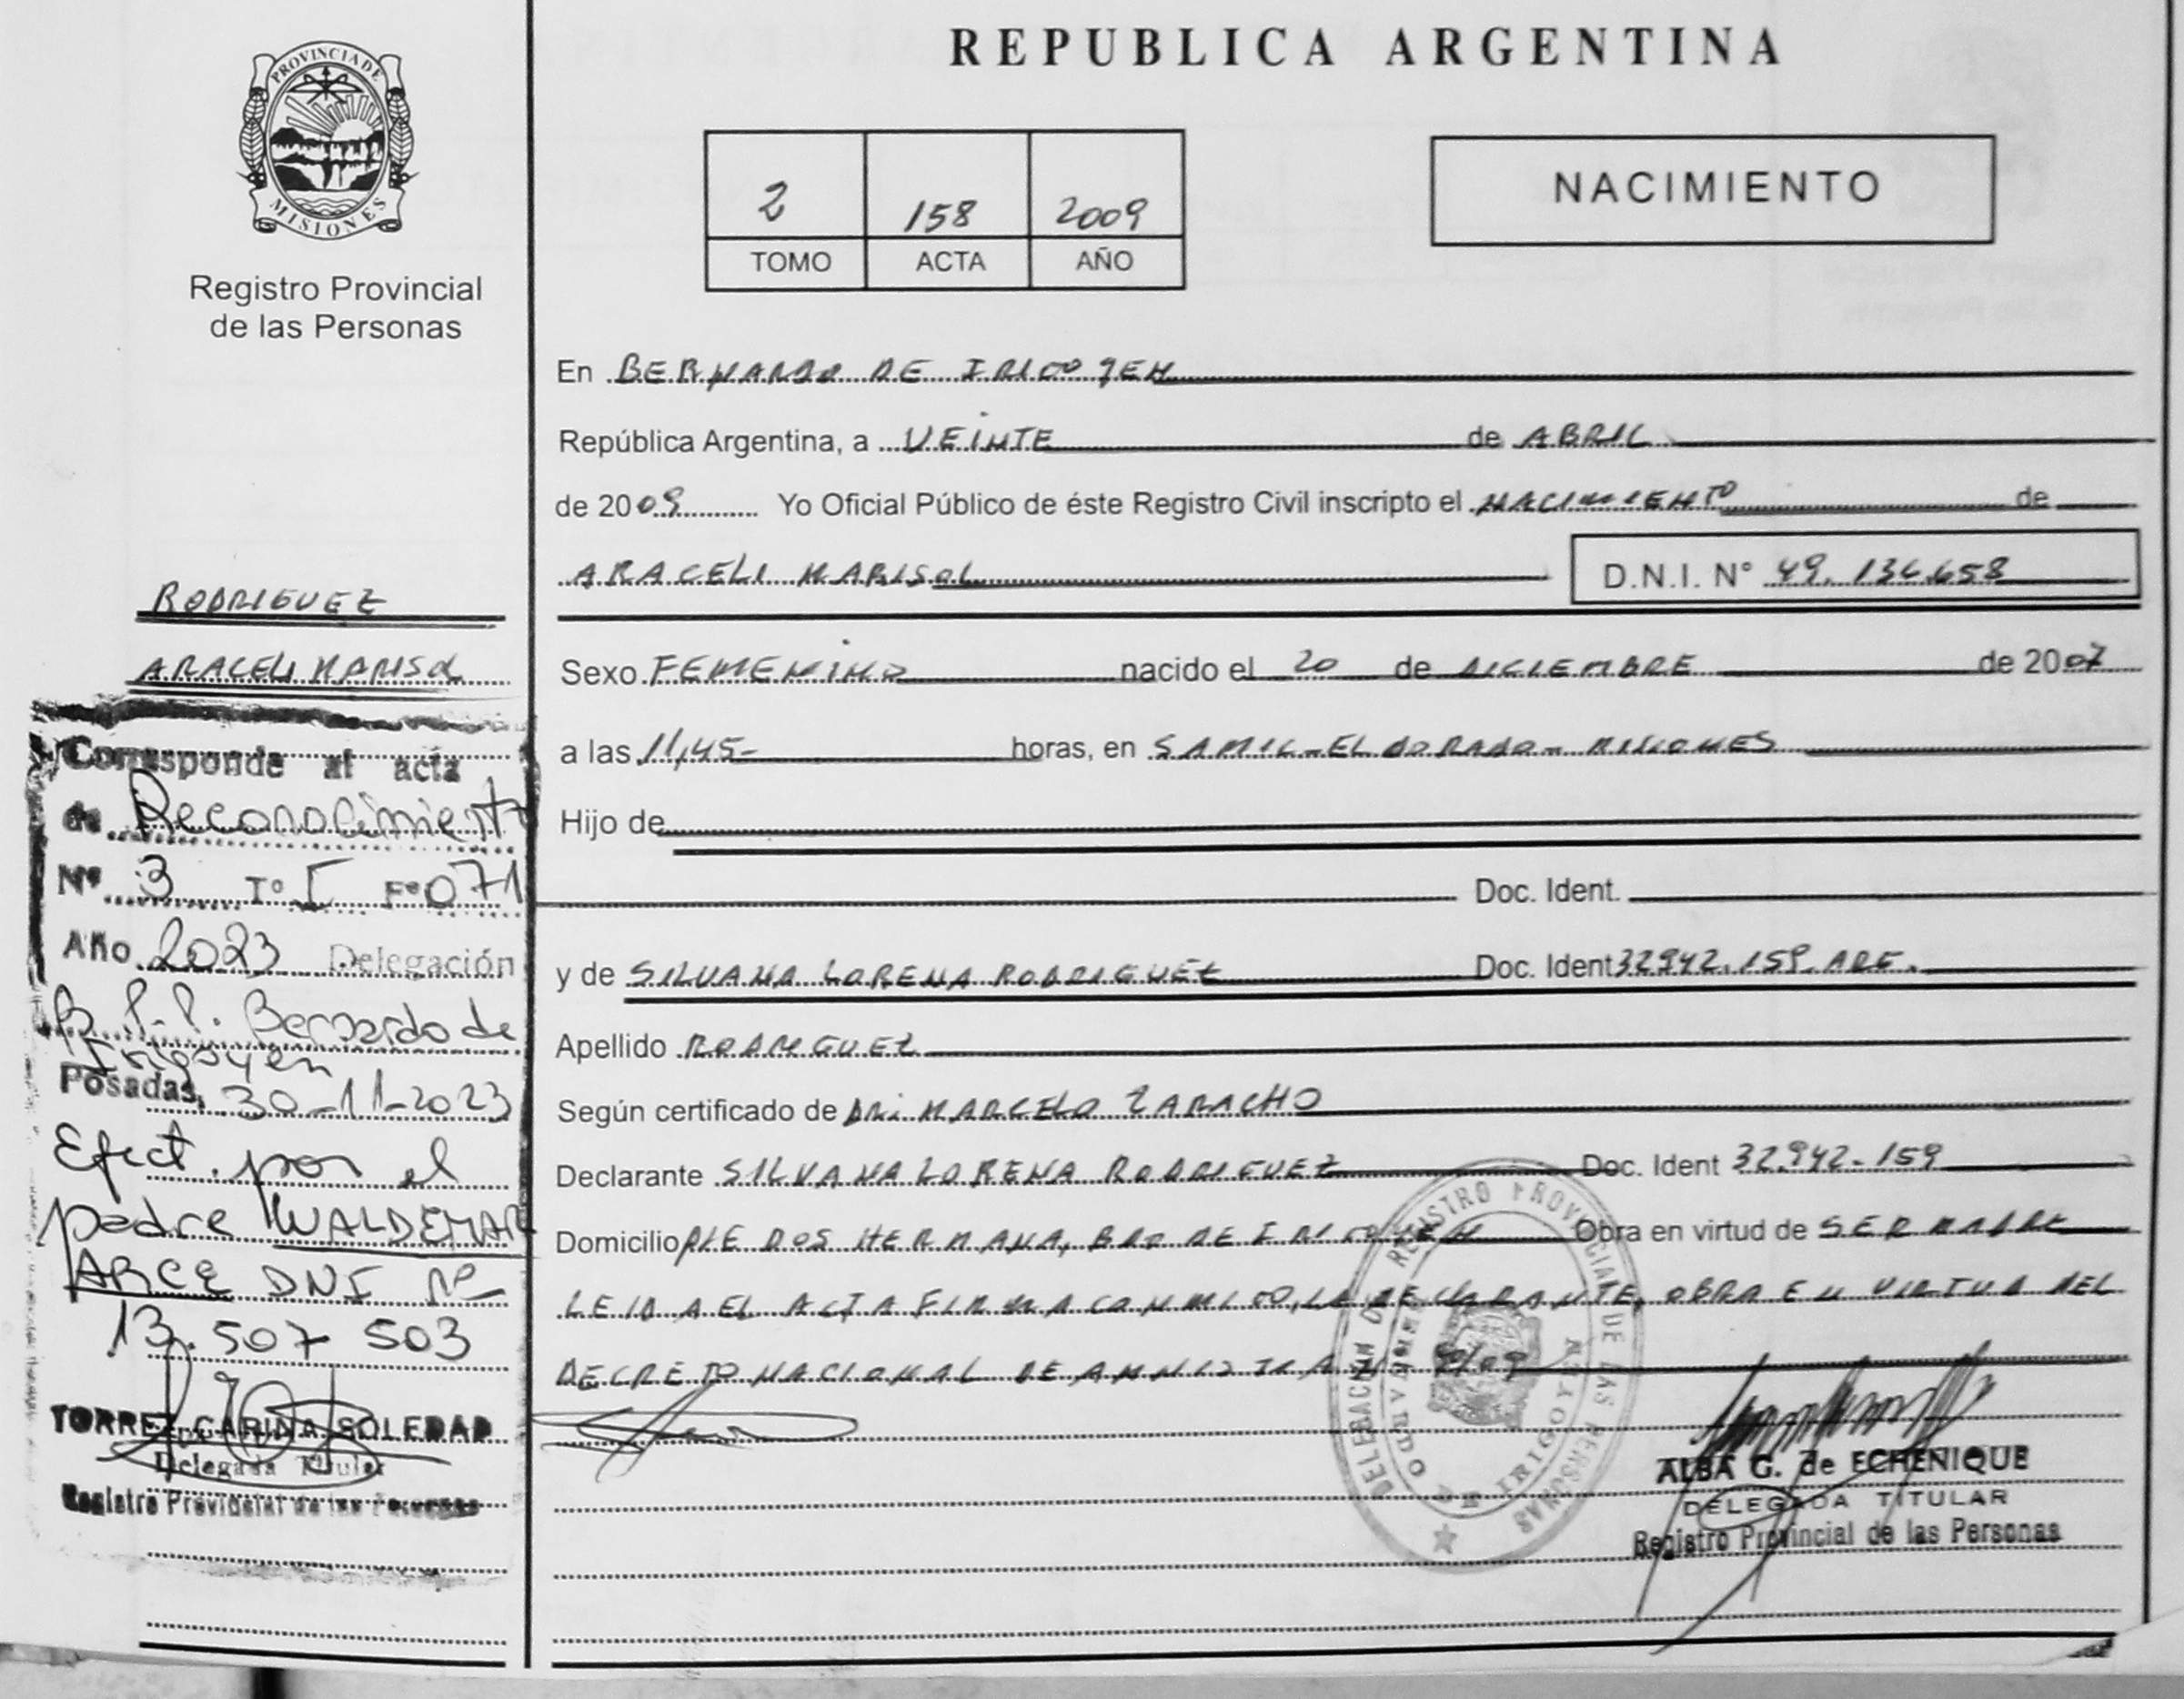 REPUBLICA ARGENTINA
PROVINCIA DE
MISIONES
Registro Provincial
de las Personas
2 158 2009
TOMO ACTA AÑO
NACIMIENTO
En BERNARDO DE IRIGOYEN
República Argentina, a VEINTE de ABRIL
de 2009 Yo Oficial Público de éste Registro Civil inscripto el NACIMIENTO de
ARACELI MARISOL D.N.I. N° 49.136.658
Sexo FEMENINO nacido el 20 de DICIEMBRE de 2007
a las 11,45- horas, en SAMIC-ELDORADO-MISIONES
Hijo de
Doc. Ident.
y de SILVANA LORENA RODRIGUEZ Doc. Ident 32942.159 ARG.
Apellido RODRIGUEZ
Según certificado de DR: MARCELO ZARACHO
Declarante SILVANA LORENA RODRIGUEZ Doc. Ident 32.942-159
Domicilio PJE DOS HERMANA, BDO DE IRIGOYEN Obra en virtud de SER MADRE
LEIDA EL ACTA FIRMA CONMIGO, LA DECLARANTE, OBRA EN VIRTUD DEL
DECRETO NACIONAL DE AMNISTIA N° 90/09
DELEGACION DEL REGISTRO PROVINCIAL DE LAS PERSONAS
DE IRIGOYEN
ALBA G. de ECHENIQUE
DELEGADA TITULAR
Registro Provincial de las Personas
RODRIGUEZ
ARACELI MARISOL
Corresponde al acta
de Reconocimiento
Nº 3 Tº I Fº 071
Año 2023 Delegación
R.P.P. Bernardo de
Irigoyen
Posadas, 30-11-2023
Efect. por el
padre WALDEMAR
ARCE DNI Nº
13.507 503
TORREZ CARINA SOLEDAD
Delegada Titular
Registro Provincial de las Personas